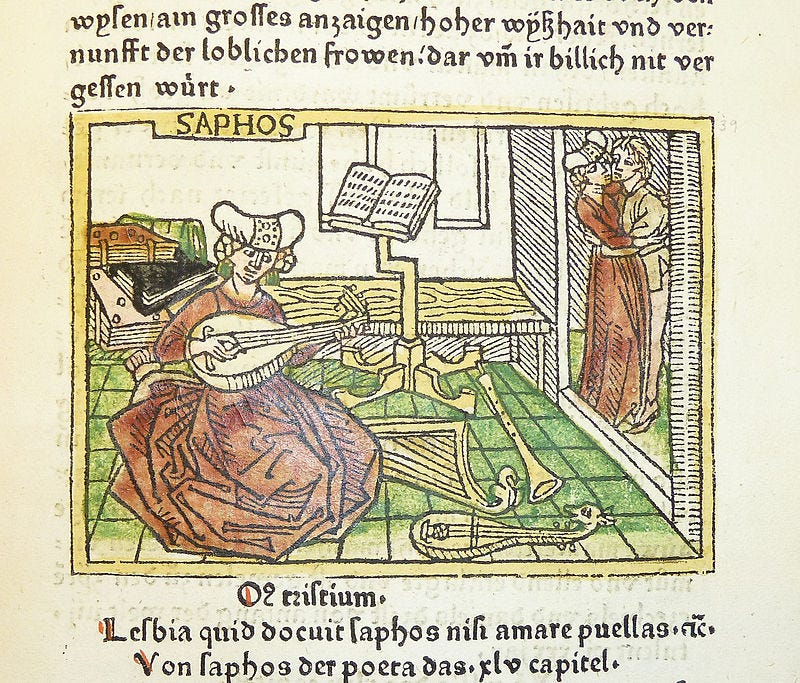 wysen/ain grosses anzaigen/hoher wyßhait vnd ver:
nunfft der loblichen frowen!dar vm̃ ir billich nit ver
gessen würt.
SAPHOS
39
Oꝛ tristium.
Lesbia quid docuit saphos nisi amare puellas.ꝛc̃.
Von saphos der poeta das.xlv capitel.